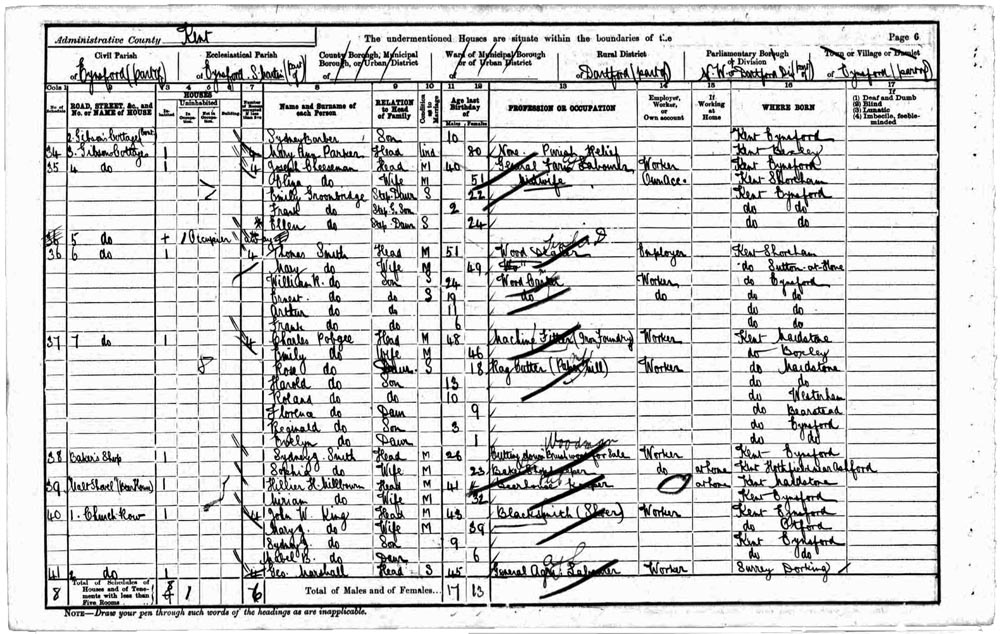 Administrative County Kent The undermentioned Houses are situate within the boundaries of the Page 6
Civil Parish Ecclesiastical Parish County Borough, Municipal Borough, or Urban District Ward of Municipal Borough or of Urban District Rural District Parliamentary Borough or Division Town or Village or Hamlet
of Eynsford (part of) of Eynsford S. Martin (part of) of of of Dartford (part of) of N.W. Dartford Div (part of) of Eynsford (part of)
Cols 1 2 3 4 5 6 7 8 9 10 11 12 13 14 15 16 17
ROAD, STREET, &c., and No. or NAME of HOUSE HOUSES Uninhabited Building Name and Surname of each Person RELATION to Head of Family Condition as to Marriage Age last Birthday of Males Females PROFESSION OR OCCUPATION Employer, Worker, or Own account If Working at Home WHERE BORN (1) Deaf and Dumb (2) Blind (3) Lunatic (4) Imbecile, feeble-minded
2 Gibson Cottages Sydney Barber Son 10 Kent Eynsford
34 3. Gibson Cottages 1 Mary Ann Parker Head 80 None Parish Relief Kent Bexley
35 4 do 1 4 Joseph Cheeseman Head M 40 General Farm Labourer Worker Kent Eynsford
Eliza do Wife M 51 Midwife Own Acc. Kent Shoreham
Emily Groombridge Step Daur S 22 Kent Eynsford
Frank do Step G. Son 2 do do
Ellen do Step Daur S 24 do do
5 do 1 Occupier
36 6 do 1 4 Thomas Smith Head M 51 Wood Employer Kent Shoreham
Mary do Wife M 49 do Sutton-at-Hone
William H. do Son S 24 Wood Worker do Eynsford
Ernest do do S 19 do do do do
Arthur do do 11 do do
Frank do do 6 do do
37 7 do 1 4 Charles Pobgee Head M 48 Machine Fitter (Iron Foundry) Worker Kent Maidstone
Emily do Wife M 46 do Boxley
Rose do Daur S 18 Rag Cutter (Paper Mill) Worker do Maidstone
Harold do Son 13 do do
Roland do do 10 do Westerham
Florence do Daur 9 do Bearstead
Reginald do Son 3 do Eynsford
Evelyn do Daur 1 do do
Woodman
38 Baker's Shop 1 Sydney Smith Head M 26 Cutting down Brushwood for Sale Worker Kent Eynsford
Sophia do Wife M 23 Baker Shopkeeper do at home Kent Hothfield near Ashford
39 Malt Shovel (Beer House) 1 Hillier H. Millbourn Head M 41 Beerhouse Keeper at home Kent Maidstone
Miriam do Wife M 32 Kent Eynsford
40 1. Church Row 1 4 John W. King Head M 43 Blacksmith (Shoer) Worker Kent Eynsford
Mary J. do Wife M 39 do Otford
Sydney J. do Son 9 Kent Eynsford
Mabel B. do Daur 6 do do
41 2 do 1 4 Geo. Marshall Head S 45 General Agric. Labourer Worker Surrey Dorking
8 Total of Schedules of Houses and of Tenements with less than Five Rooms 8 1 6 Total of Males and of Females... 17 13
NOTE—Draw your pen through such words of the headings as are inapplicable.